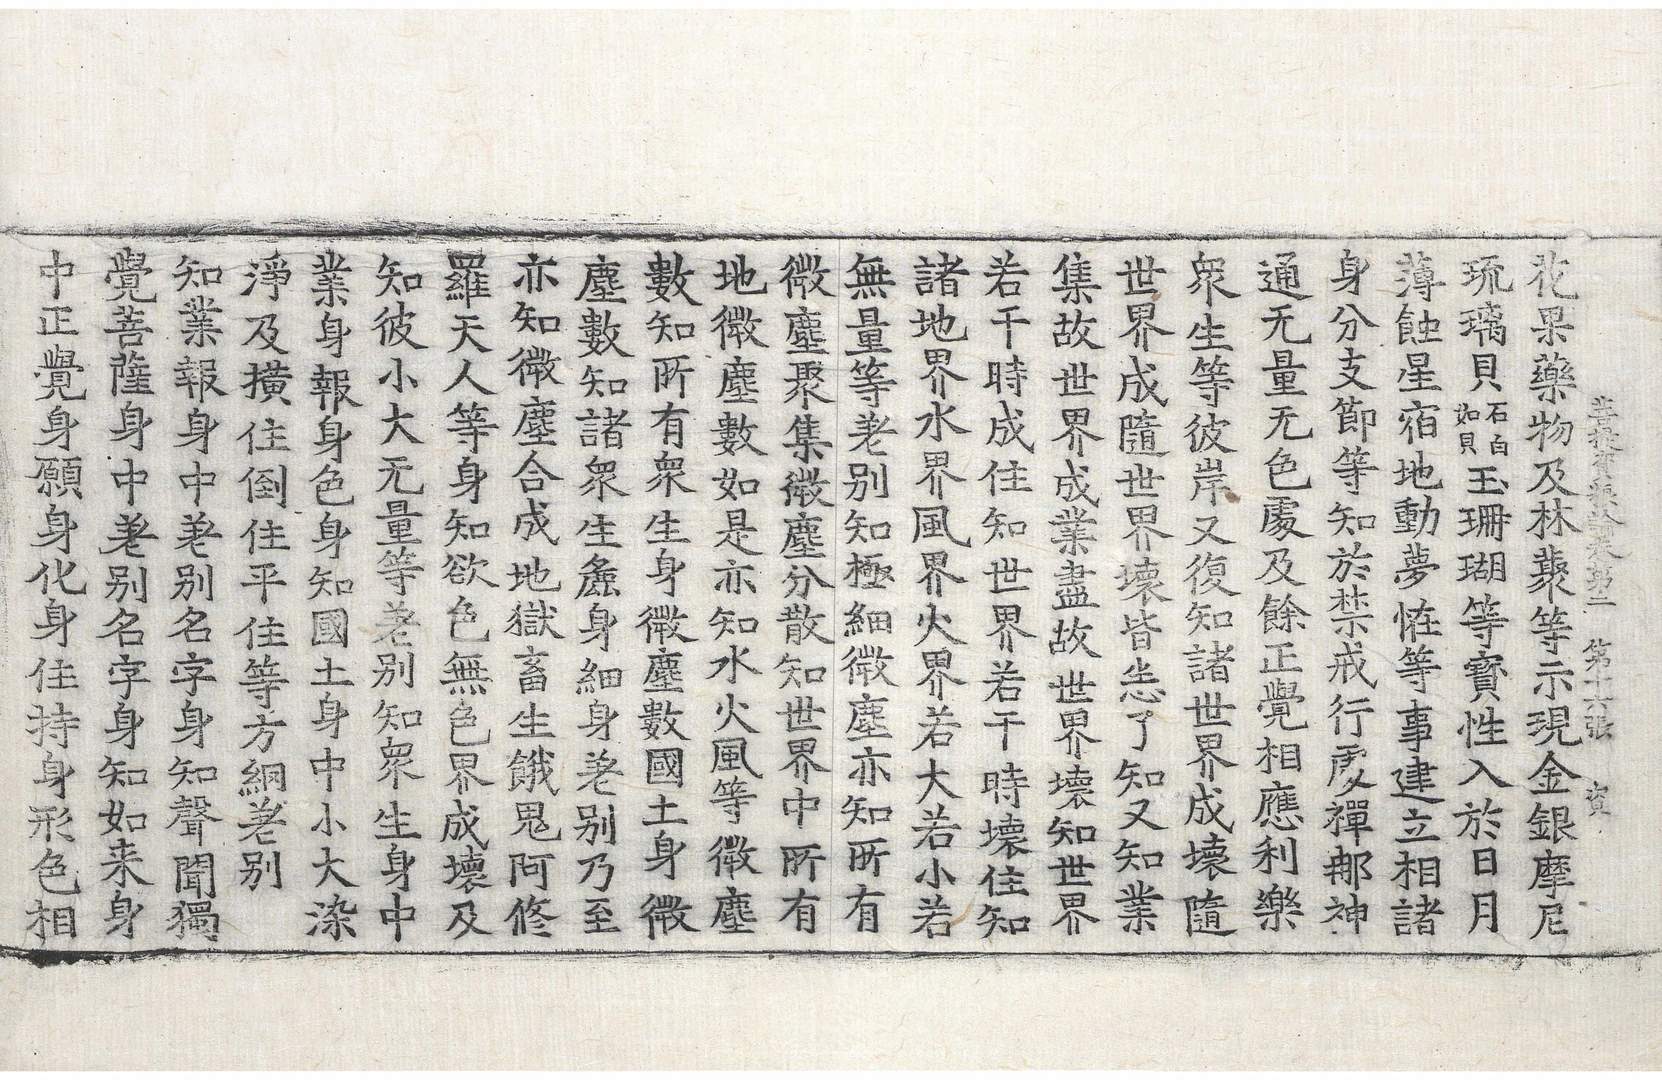 菩提資糧論卷第二 第十六張 賓
花果藥物及林藂等示現金銀摩尼
琉璃貝石白如貝玉珊瑚等寳性入於日月
薄蝕星宿地動夢恠等事建立相諸
身分支節等知於禁戒行處禪那神
通无量无色處及餘正覺相應利樂
衆生等彼岸又復知諸世界成壞隨
世界成隨世界壞皆悉了知又知業
集故世界成業盡故世界壞知世界
若干時成住知世界若干時壞住知
諸地界水界風界火界若大若小若
無量等差别知極細微塵亦知所有
微塵聚集微塵分散知世界中所有
地微塵數如是亦知水火風等微塵
數知所有衆生身微塵數國土身微
塵數知諸衆生麁身細身差别乃至
亦知微塵合成地獄畜生餓鬼阿修
羅天人等身知欲色無色界成壞及
知彼小大无量等差别知衆生身中
業身報身色身知國土身中小大染
淨及撗住倒住平住等方綱差别
知業報身中差别名字身知聲聞獨
覺菩薩身中差别名字身知如来身
中正覺身願身化身住持身形色相